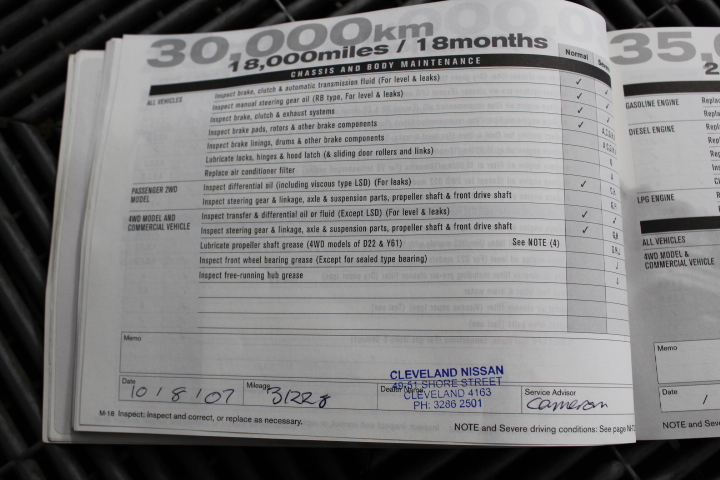 30,000km
18,000miles / 18months
CHASSIS AND BODY MAINTENANCE
Normal
ALL VEHICLES
Inspect brake, clutch & automatic transmission fluid (For level & leaks) ✓
Inspect manual steering gear oil (RB type, For level & leaks) ✓
Inspect brake, clutch & exhaust systems ✓
Inspect brake pads, rotors & other brake components ✓
Inspect brake linings, drums & other brake components
Lubricate locks, hinges & hood latch (& sliding door rollers and links)
Replace air conditioner filter
PASSENGER 2WD MODEL
Inspect differential oil (including viscous type LSD) (For leaks) ✓
Inspect steering gear & linkage, axle & suspension parts, propeller shaft & front drive shaft
4WD MODEL AND COMMERCIAL VEHICLE
Inspect transfer & differential oil or fluid (Except LSD) (For level & leaks) ✓
Inspect steering gear & linkage, axle & suspension parts, propeller shaft & front drive shaft ✓
Lubricate propeller shaft grease (4WD models of D22 & Y61) See NOTE (4)
Inspect front wheel bearing grease (Except for sealed type bearing)
Inspect free-running hub grease
Memo
Date 10/8/07
Mileage 31228
Dealer Name
CLEVELAND NISSAN
49-51 SHORE STREET
CLEVELAND 4163
PH: 3286 2501
Service Advisor Cameron
M-18 Inspect: Inspect and correct, or replace as necessary.
NOTE and Severe driving conditions: See page
35,
2
GASOLINE ENGINE
DIESEL ENGINE
LPG ENGINE
ALL VEHICLES
4WD MODEL & COMMERCIAL VEHICLE
Memo
Date /
NOTE and